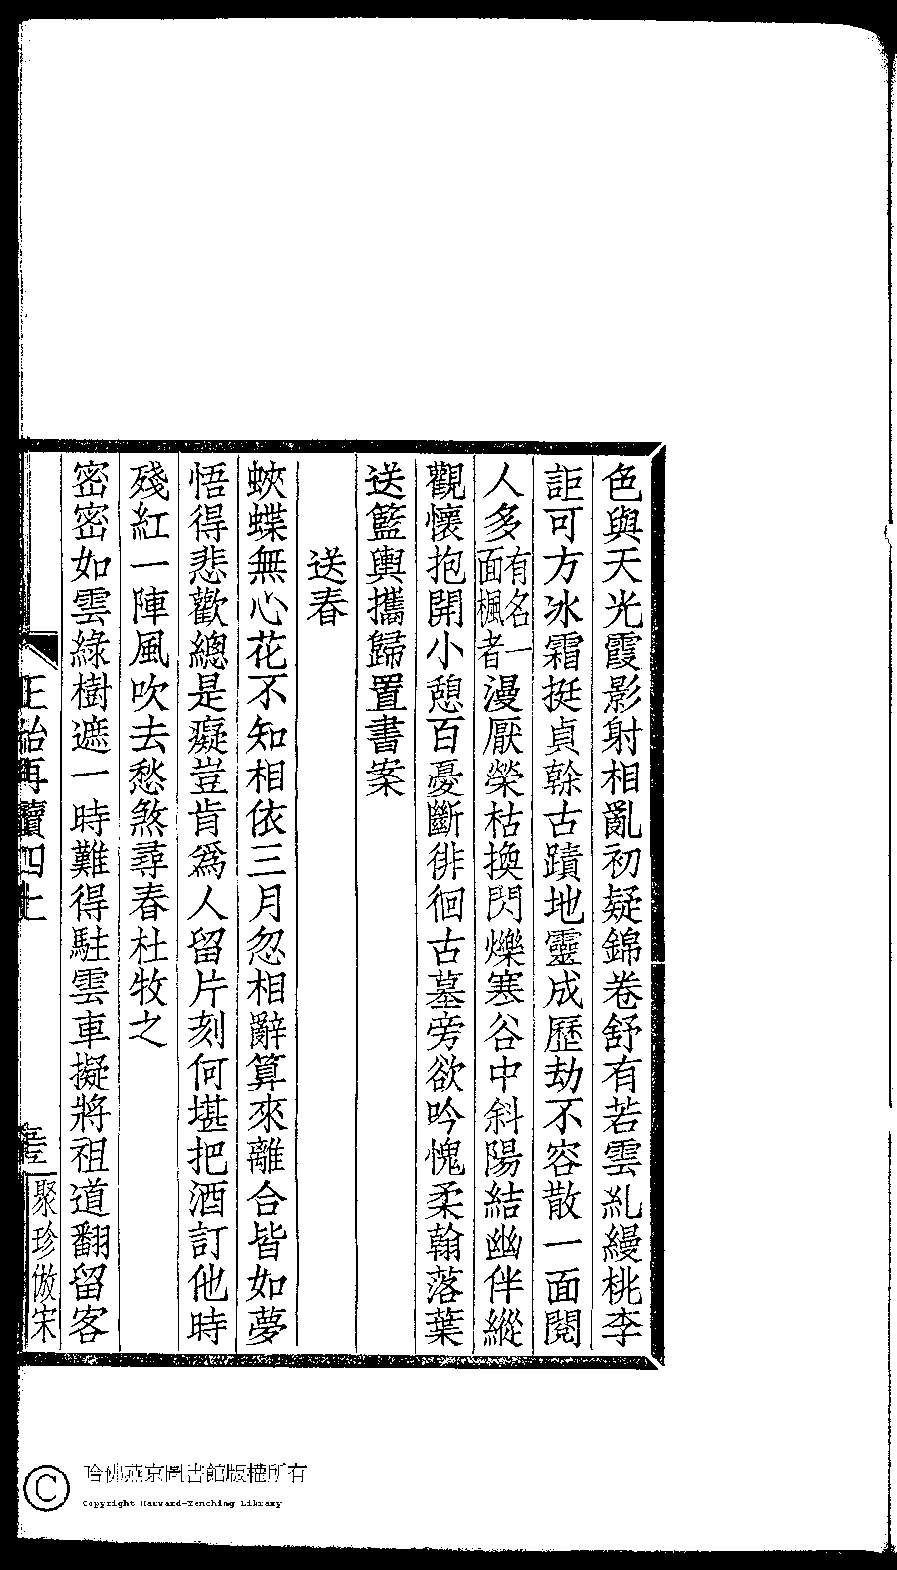 色與天光霞影射相亂初疑錦卷舒有若雲糺縵桃李
詎可方冰霜挺貞榦古蹟地靈成歷劫不容散一面閱
人多有名一面楓者漫厭榮枯換閃爍寒谷中斜陽結幽伴縱
觀懷抱開小憩百憂斷徘徊古墓旁欲吟愧柔翰落葉
送籃輿攜歸置書案
送春
蛺蝶無心花不知相依三月忽相辭算來離合皆如夢
悟得悲歡總是癡豈肯為人留片刻何堪把酒訂他時
殘紅一陣風吹去愁煞尋春杜牧之
密密如雲綠樹遮一時難得駐雲車擬將祖道翻留客
正始再續四上
聚珍倣宋
哈佛燕京圖書館版權所有
Copyright Harvard-Yenching Library